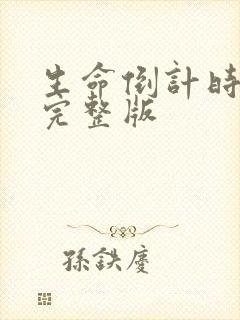 生命倒計時
完整版
孫鉄慶